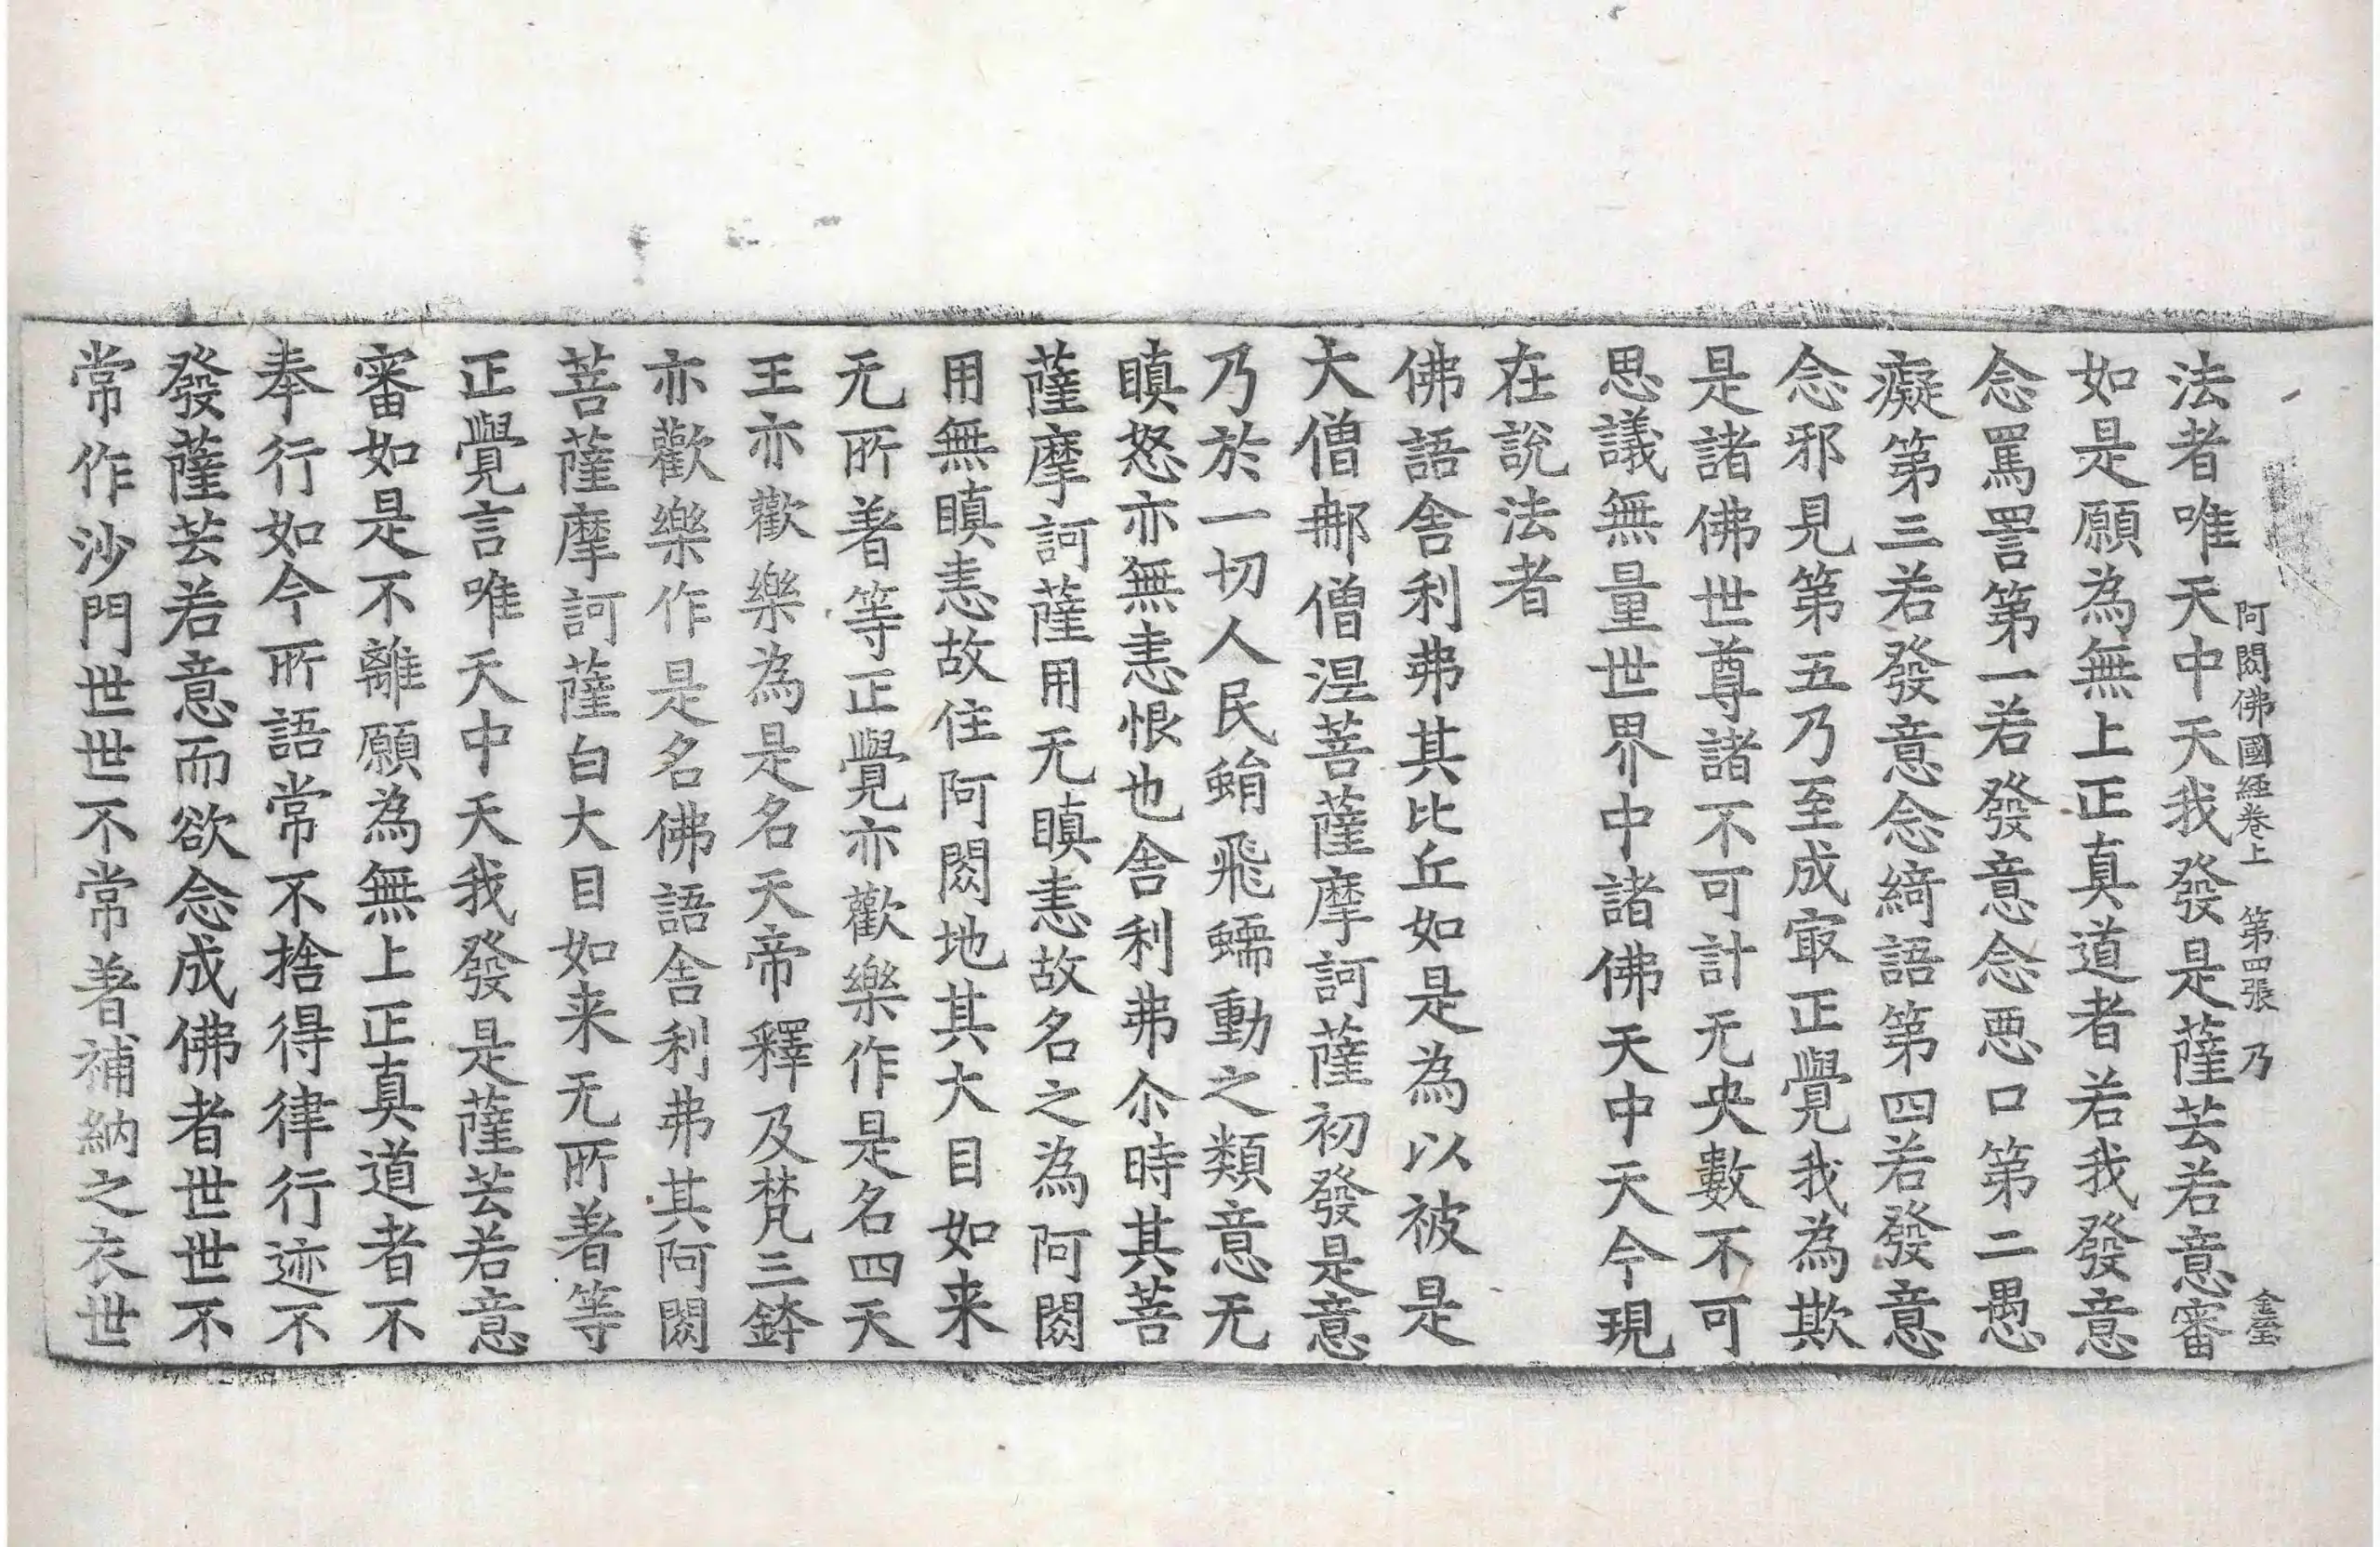 阿閦佛國經卷上　第四張　乃　金瑩
法者唯天中天我發是薩芸若意審
如是願為無上正真道者若我發意
念罵詈第一若發意念惡口第二愚
癡第三若發意念綺語第四若發意
念邪見第五乃至成㝡正覺我為欺
是諸佛世尊諸不可計无央數不可
思議無量世界中諸佛天中天今現
在說法者
佛語舍利弗其比丘如是為以被是
大僧那僧涅菩薩摩訶薩初發是意
乃於一切人民蜎飛蠕動之類意无
瞋怒亦無恚恨也舍利弗尒時其菩
薩摩訶薩用无瞋恚故名之為阿閦
用無瞋恚故住阿閦地其大目如来
无所著等正覺亦歡樂作是名四天
王亦歡樂為是名天帝釋及梵三鉢
亦歡樂作是名佛語舍利弗其阿閦
菩薩摩訶薩白大目如来无所著等
正覺言唯天中天我發是薩芸若意
審如是不離願為無上正真道者不
奉行如今所語常不捨得律行迹不
發薩芸若意而欲念成佛者世世不
常作沙門世世不常著補納之衣世